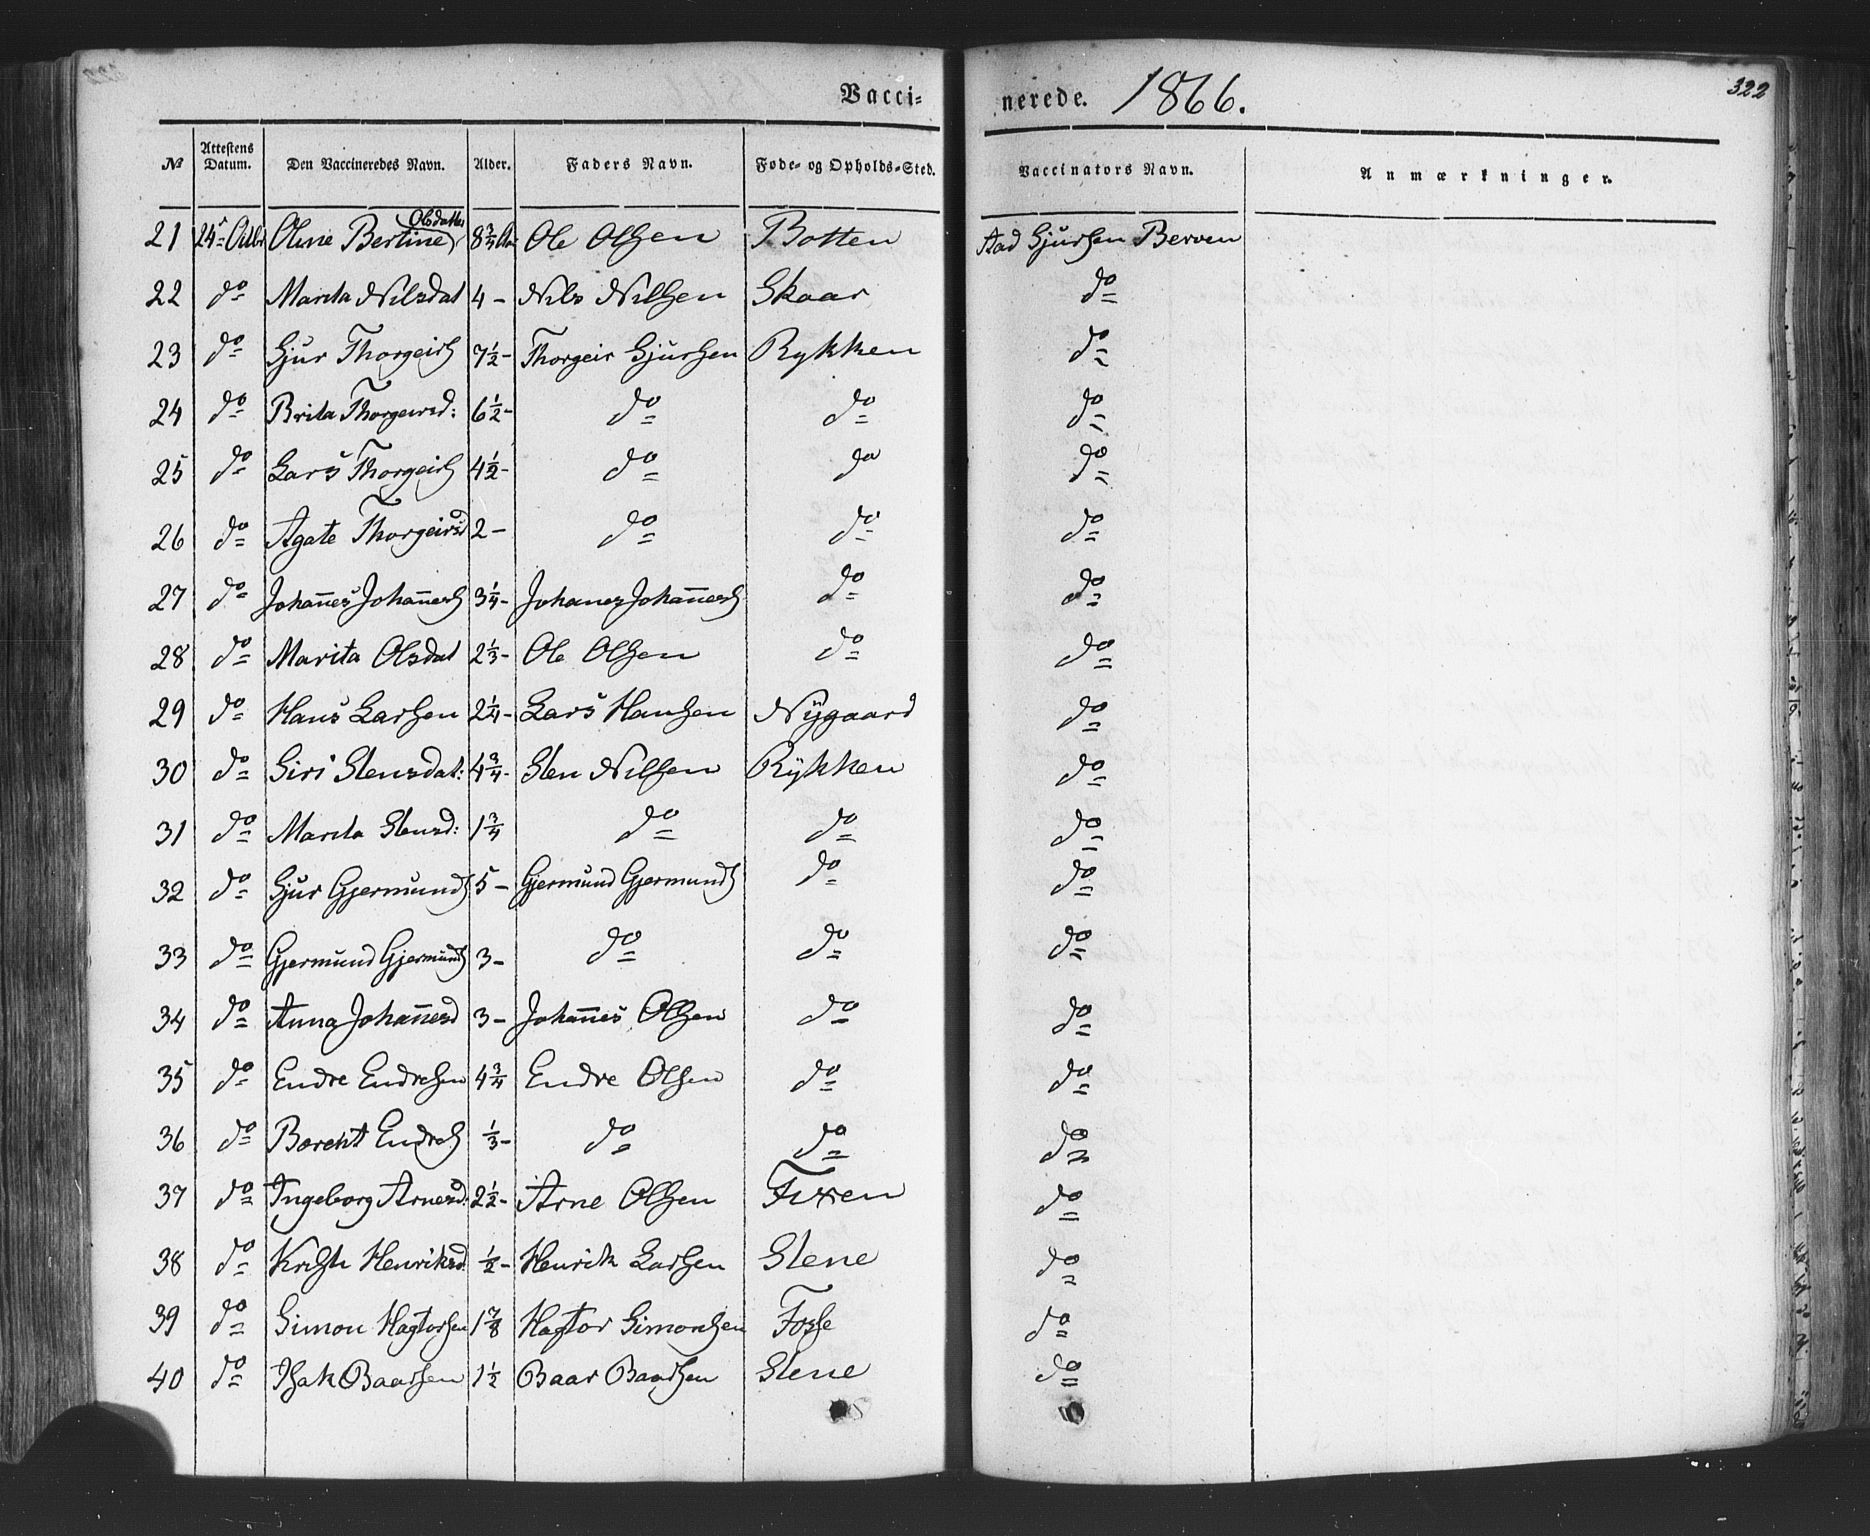 Vacci= nerede. 1866. 322
№ Attestens Datum. Den Vaccineredes Navn. Alder. Faders Navn. Føde- og Opholds-Sted. Vaccinators Navn. Anmærkninger.
Olsdatter
21 24de Octbr Oline Bertine 8 3/4 Aar Ole Olsen Botten Aad Sjursen Berven
22 do Marita Nilsdat 4 - Nils Nilsen Skaar do
23 do Sjur Thorgeirs 7 1/2 - Thorgeir Sjursen Rykken do
24 do Brita Thorgeirsd: 6 1/2 - do do do
25 do Lars Thorgeirs 4 1/2 - do do do
26 do Agate Thorgeirsd 2 - do do do
27 do Johan̅es Johan̅es 3 1/4 - Johanes Johan̅es do do
28 do Marita Olsdat 2 1/3 - Ole Olsen do do
29 do Hans Larsen 2 1/4 - Lars Hansen Nygaard do
30 do Siri Stensdat: 4 3/4 - Sten Nilsen Rykken do
31 do Marita Stensd: 1 3/4 do do do
32 do Sjur Gjermunds 5 - Gjermund Gjermunds do do
33 do Gjermund Gjermunds 3 - do do do
34 do Anna Johan̅esd 3 - Johan̅es Olsen do do
35 do Endre Endresen 4 3/4 Endre Olsen do do
36 do Borent Endres 1/3 - do do do
37 do Ingeborg Arnesd: 2 1/2 - Arne Olsen Fixen do
38 do Kristi Henriksd. 1/2 - Henrik Larsen Stene do
39 do Simon Hagtorsen 1 7/8 Hagtor Simonsen Fosse do
40 do Isak Baarsen 1 1/2 Baar Baardsen Stene do